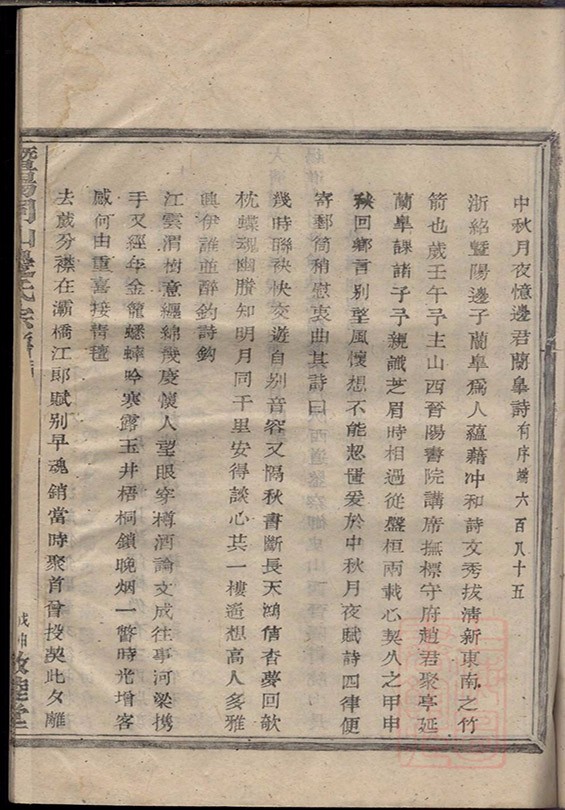 中秋月夜憶邊君蘭皐詩有序端六百九十五
浙紹暨陽邊子蘭皐爲人蘊藉冲和詩文秀拔清新東南之竹
箭也歲壬午予主山西晉陽書院講席撫標守府趙君聚亭延
蘭皐課諸子予親識芝眉時相過從盤桓兩載心契久之甲申
秋回鄉言别望風懷想不能恝置爰於中秋月夜賦詩四律便
寄郵筒稍慰衷曲其詩曰
幾時聯袂快交遊自别音容又隔秋書斷長天鴻信杳夢回欹
枕蝶魂幽勝知明月同千里安得談心共一樓遥想高人多雅
興伊誰並醉釣詩鈎
江雲渭樹意纏綿幾度懷人望眼穿樽酒論文成往事河梁携
手又經年金籠蟋蟀吟寒露玉井梧桐鎖晩烟一瞥時光增客
感何由重喜接青氊
去歲分襟在灞橋江郎賦别早魂銷當時聚首曾投契此夕離
暨陽同山邊氏宗譜
戊申敦睦堂